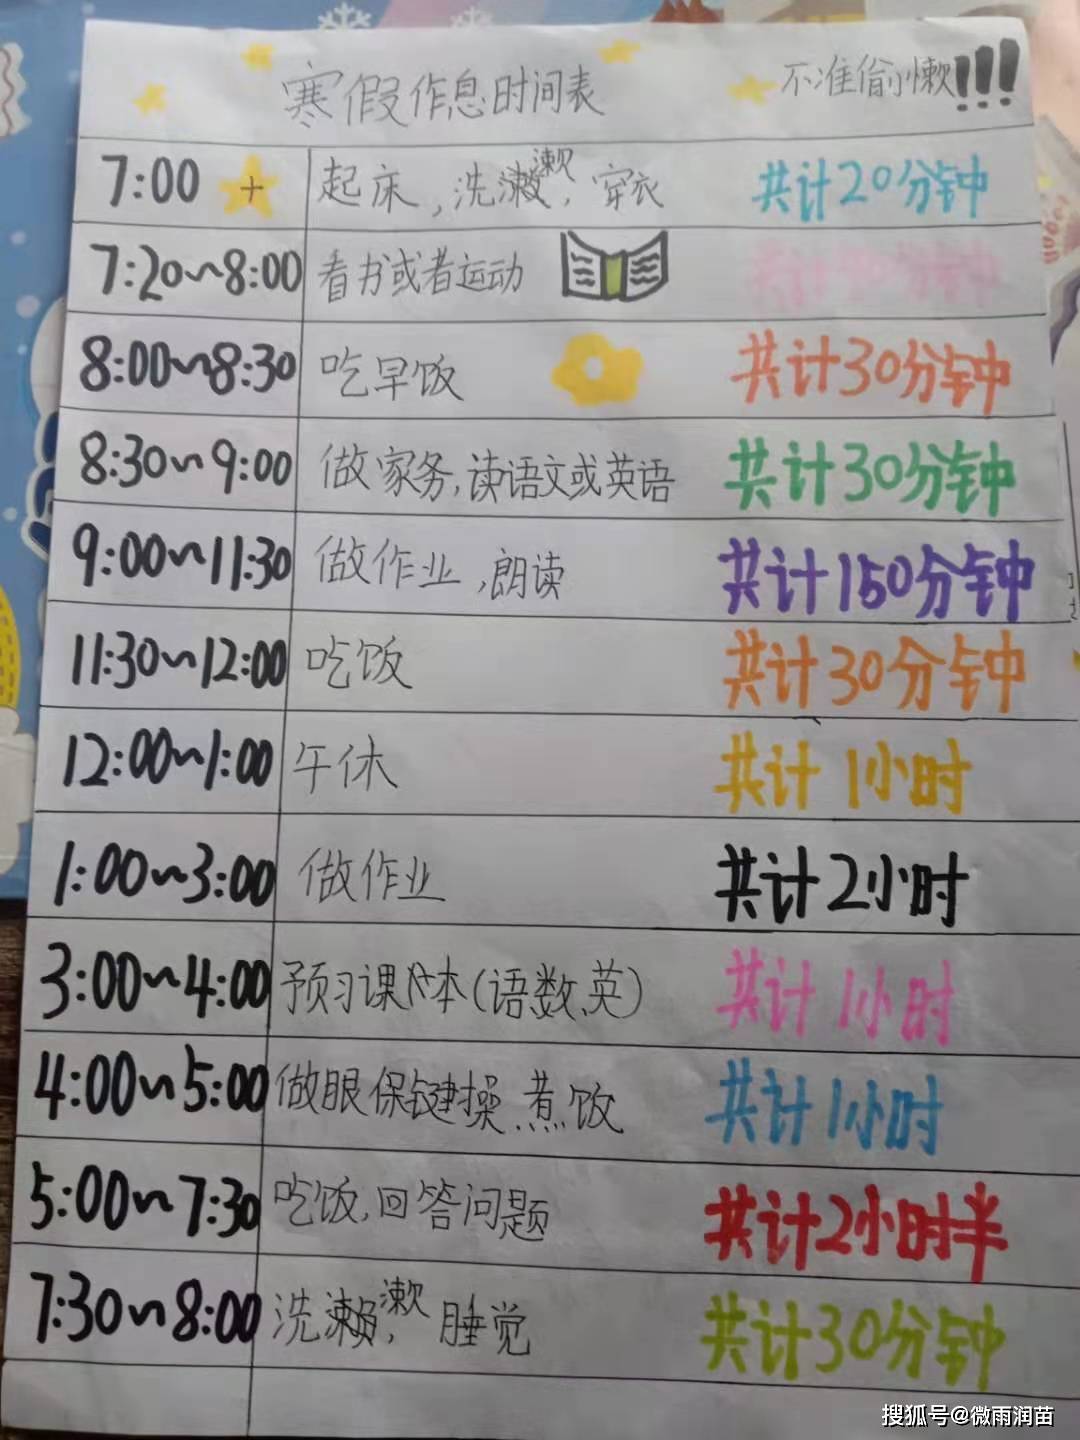 寒假作息时间表 不准偷小懒!!!
7:00 + 起床,洗漱,穿衣 共计20分钟
7:20~8:00 看书或者运动
8:00~8:30 吃早饭 共计30分钟
8:30~9:00 做家务,读语文或英语 共计30分钟
9:00~11:30 做作业,朗读 共计150分钟
11:30~12:00 吃饭 共计30分钟
12:00~1:00 午休 共计1小时
1:00~3:00 做作业 共计2小时
3:00~4:00 预习课本(语、数、英) 共计1小时
4:00~5:00 做眼保键操、煮饭 共计1小时
5:00~7:30 吃饭,回答问题 共计2小时半
7:30~8:00 洗漱,睡觉 共计30分钟
搜狐号@微雨润苗